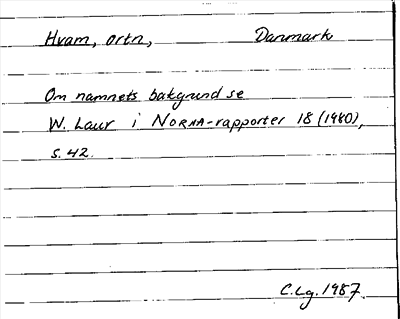 Hvam, ortn, Danmark
Om namnets bakgrund se
W. Laur i NORNA-rapporter 18 (1980),
s. 42.
C.Lg. 1987